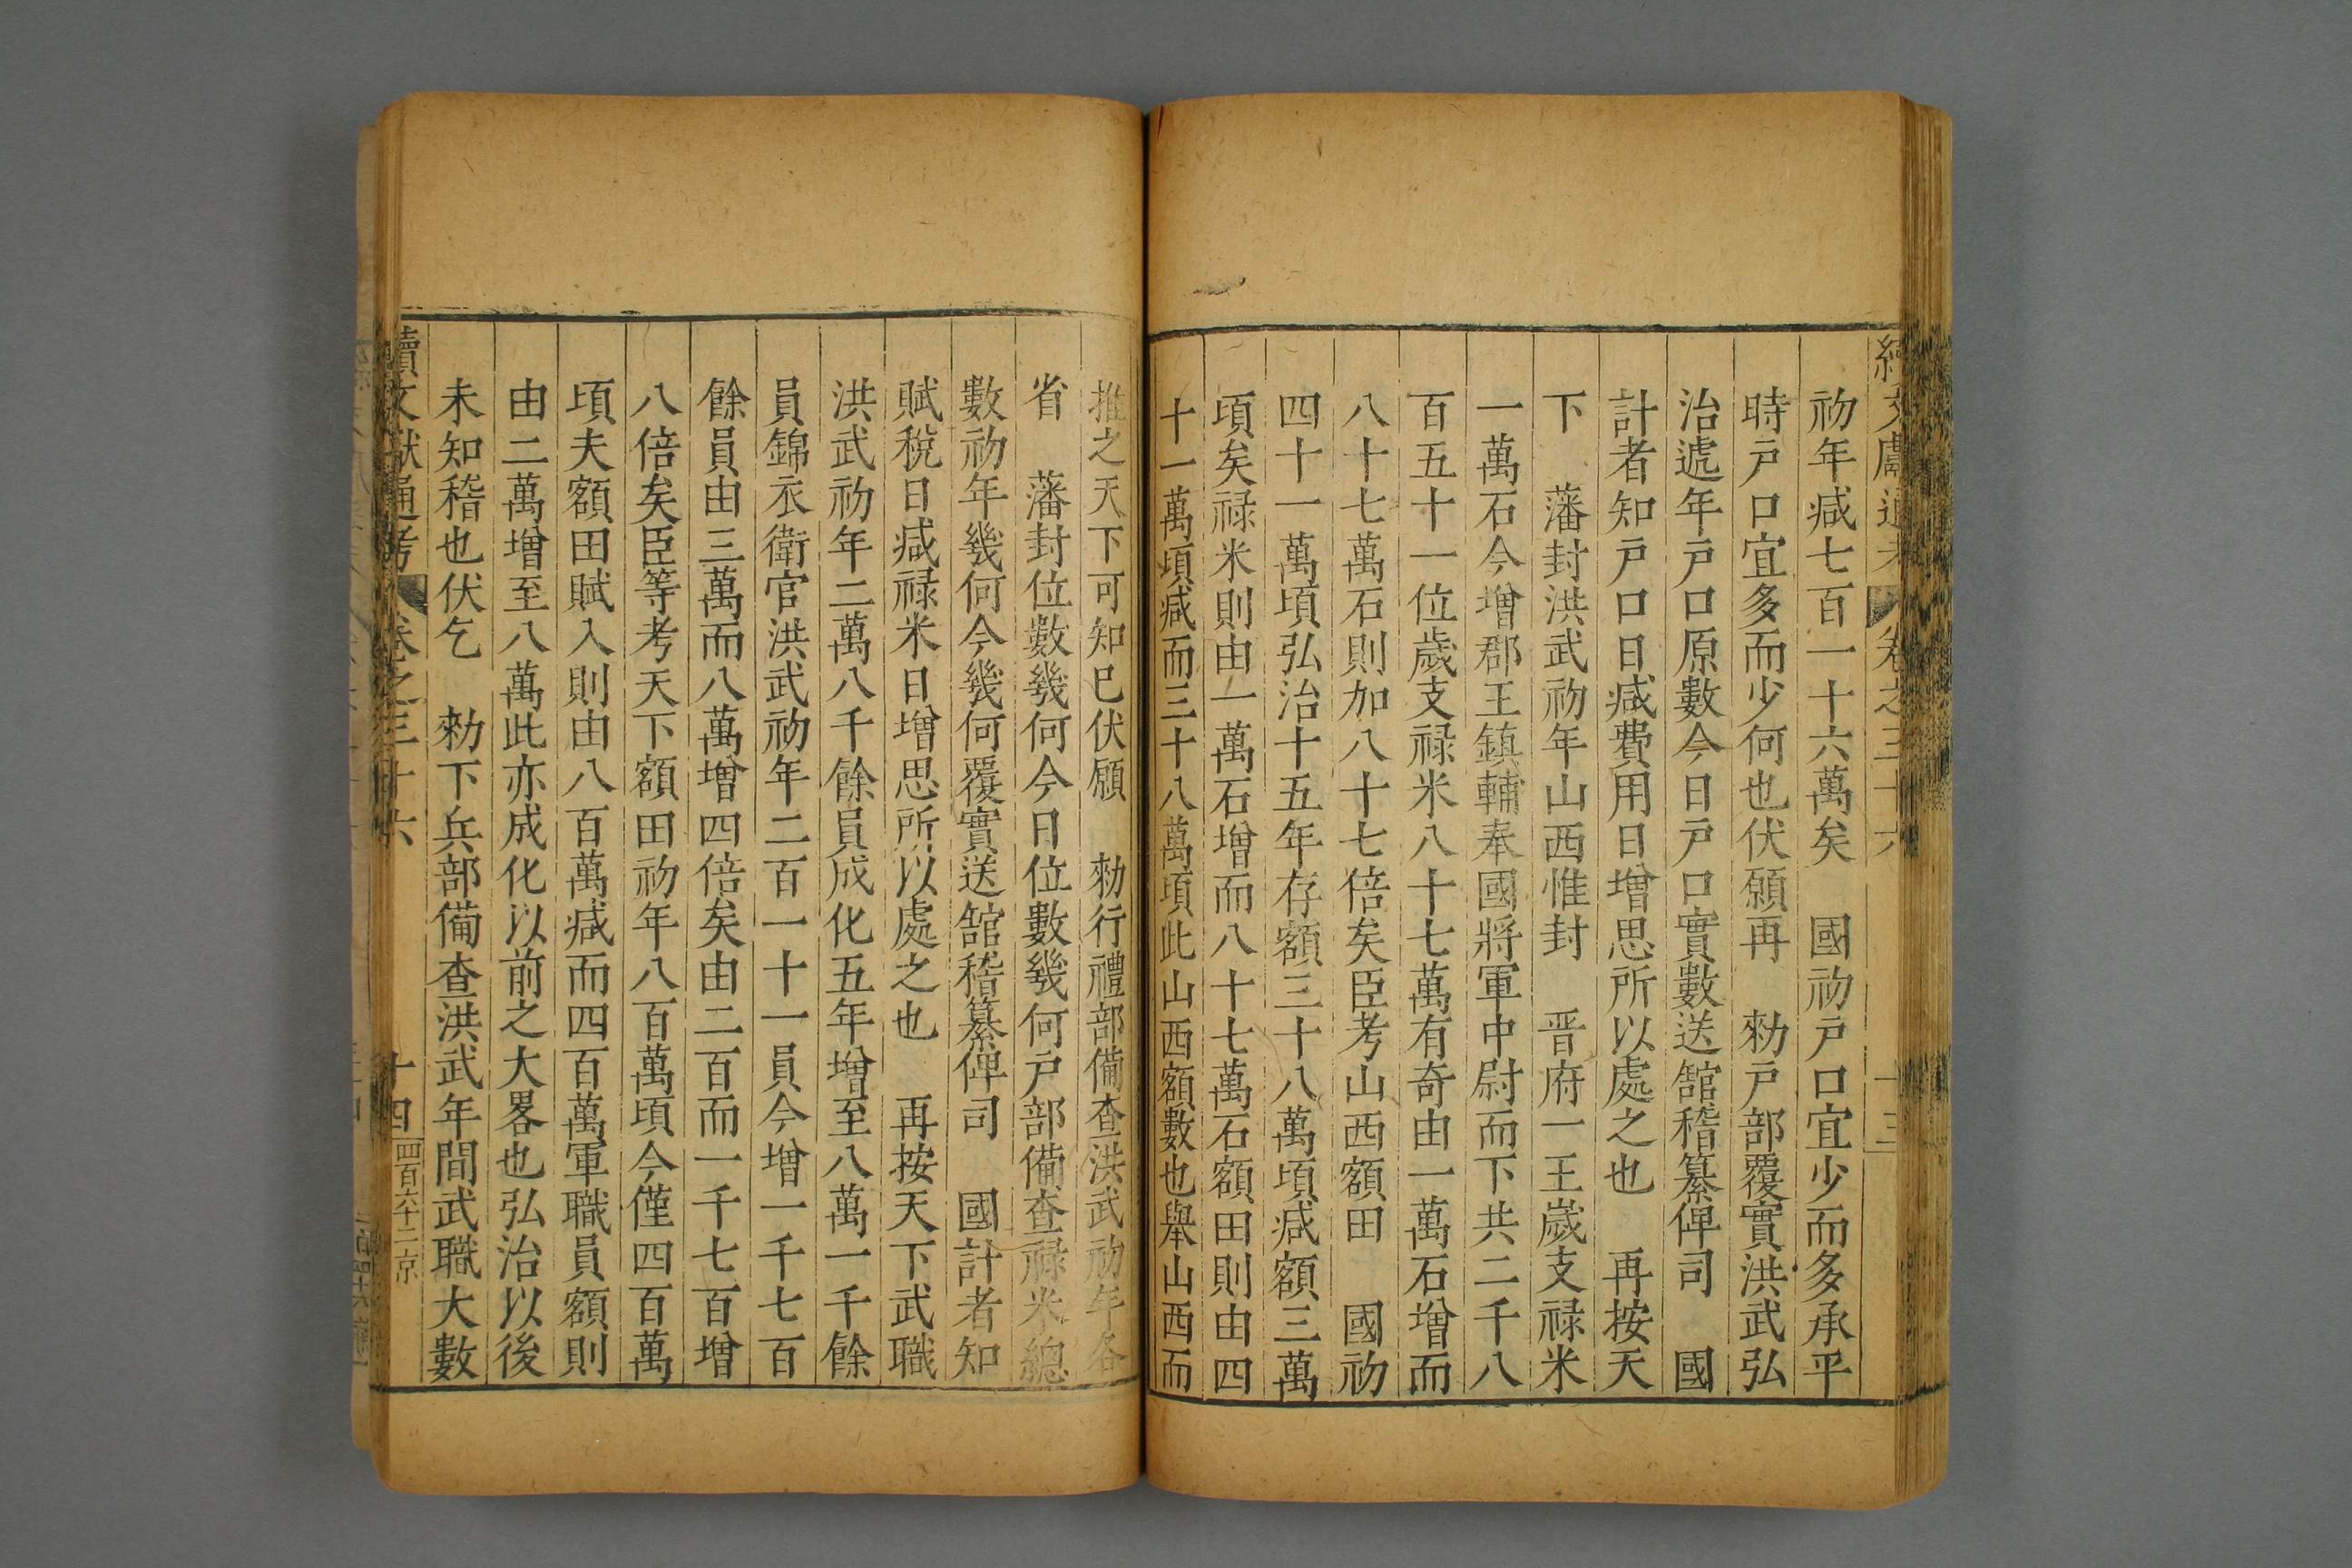 續文獻通考 卷之三十六 十三
初年减七百一十六萬矣 國初戶口宜少而多承平
時戶口宜多而少何也伏願再 勑戶部覆實洪武弘
治遞年戶口原數今日戶口實數送舘稽纂俾司 國
計者知戶口日减費用日增思所以處之也 再按天
下 藩封洪武初年山西惟封 晋府一王歲支禄米
一萬石今增郡王鎮輔奉國將軍中尉而下共二千八
百五十一位歲支禄米八十七萬有奇由一萬石增而
八十七萬石則加八十七倍矣臣考山西額田 國初
四十一萬頃弘治十五年存額三十八萬頃减額三萬
頃矣禄米則由一萬石增而八十七萬石額田則由四
十一萬頃减而三十八萬頃此山西額數也舉山西而
推之天下可知已伏願 勑行禮部備查洪武初年各
省 藩封位數幾何今日位數幾何戶部備查禄米總
數初年幾何今幾何覆實送舘稽纂俾司 國計者知
賦稅日减禄米日增思所以處之也 再按天下武職
洪武初年二萬八千餘員成化五年增至八萬一千餘
員錦衣衛官洪武初年二百一十一員今增一千七百
餘員由三萬而八萬增四倍矣由二百而一千七百增
八倍矣臣等考天下額田初年八百萬頃今僅四百萬
頃夫額田賦入則由八百萬减而四百萬軍職員額則
由二萬增至八萬此亦成化以前之大畧也弘治以後
未知稽也伏乞 勑下兵部備查洪武年間武職大數
續文獻通考 卷之三十六 十四 四百六十二 京